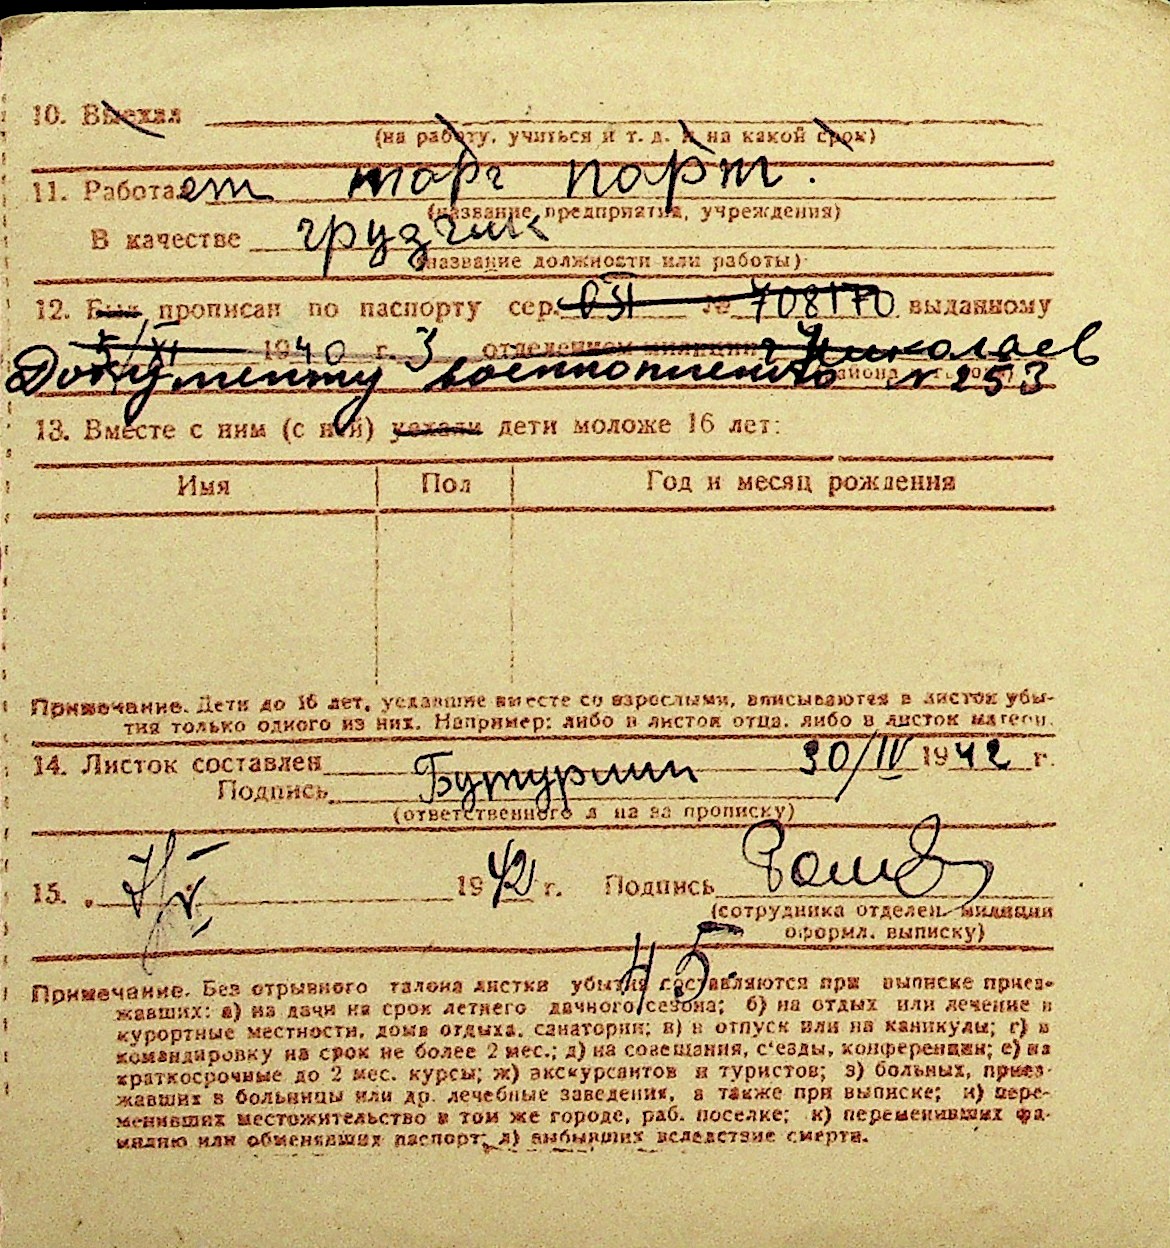 10. Выехал
(на работу, учиться и т. д. и на какой срок)
11. Работает торг порт.
(название предприятия, учреждения)
В качестве грузчик
(название должности или работы)
12. Был прописан по паспорту сер. № 708170 выданному
5/XI 1940 г. 3 отделением милиции г. Николаев
Документу военнопленного № 253
13. Вместе с ним (с ней) уехали дети моложе 16 лет:
Имя Пол Год и месяц рождения
Примечание. Дети до 16 лет, уехавшие вместе со взрослыми, вписываются в листок убы-
тия только одного из них. Например: либо в листок отца, либо в листок матери.
14. Листок составлен 30/IV 1942 г.
Подпись
(ответственного л на за прописку)
15. 7/V 1942 г. Подпись
(сотрудника отделен. милиции
оформл. выписку)
45.
Примечание. Без отрывного талона листки убытия составляются при выписке приез-
жавших: а) на дачи на срок летнего дачного сезона; б) на отдых или лечение в
курортные местности, дома отдыха, санатории; в) в отпуск или на каникулы; г) в
командировку на срок не более 2 мес.; д) на совещания, с'езды, конференции; е) на
краткосрочные до 2 мес. курсы; ж) экскурсантов и туристов; з) больных, приез-
жавших в больницы или др. лечебные заведения, а также при выписке; и) пере-
менивших местожительство в том же городе, раб. поселке; к) переменивших фа-
милию или обменявших паспорт; л) выбывших вследствие смерти.